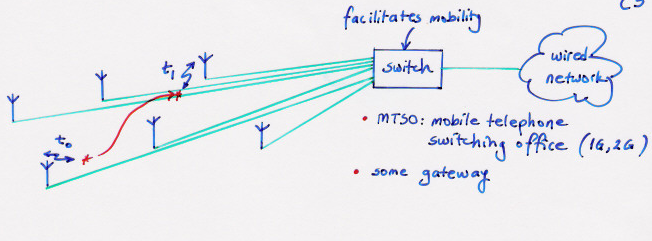 facilitates mobility
t1
switch
wired
network
t0
• MTSO: mobile telephone
switching office (1G, 2G)
• some gateway